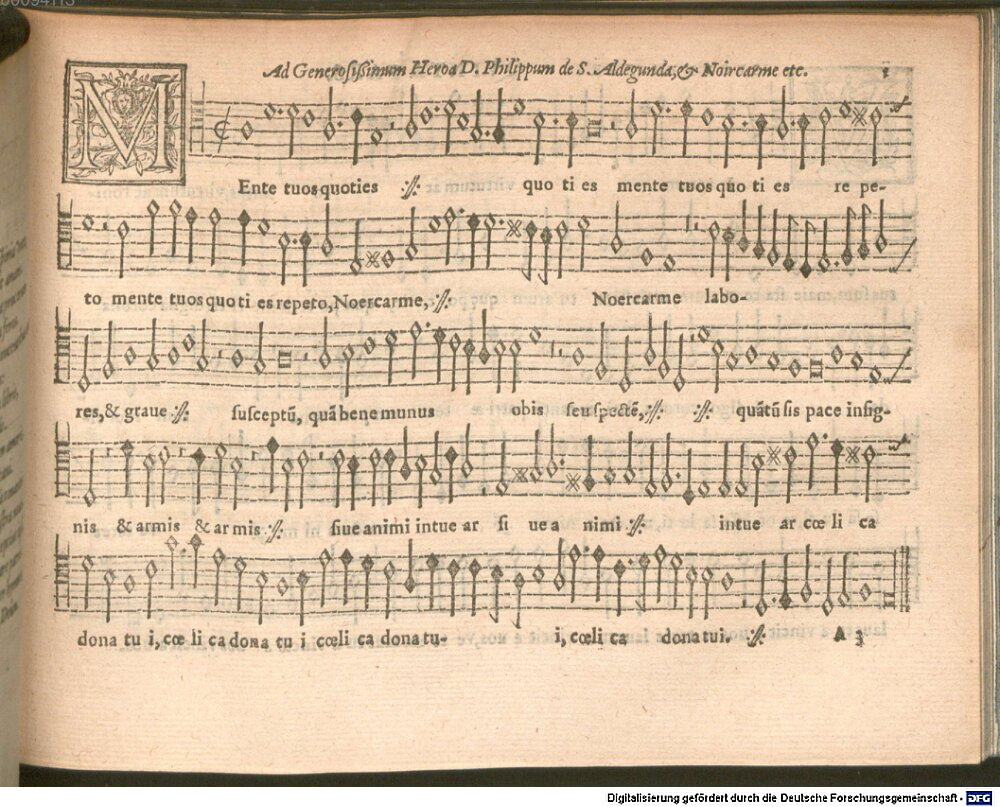 Ad Generosißimum Heroa D. Philippum de S. Aldegunda, & Noircarme etc.
M
Ente tuos quoties :||: quo ti es mente tuos quo ti es re pe-
to mente tuos quo ti es repeto, Noercarme, :||: Noercarme labo-
res, & graue :||: susceptū, quā bene munus obis seu spectē, :||: :||: quātū sis pace insig-
nis & armis & ar mis :||: siue animi intue ar si ue a nimi :||: intue ar cœ li ca
dona tu i, cœ li ca dona tu i cœli ca dona tu- i, cœli ca dona tui. :||: A 3
Digitalisierung gefördert durch die Deutsche Forschungsgemeinschaft - DFG